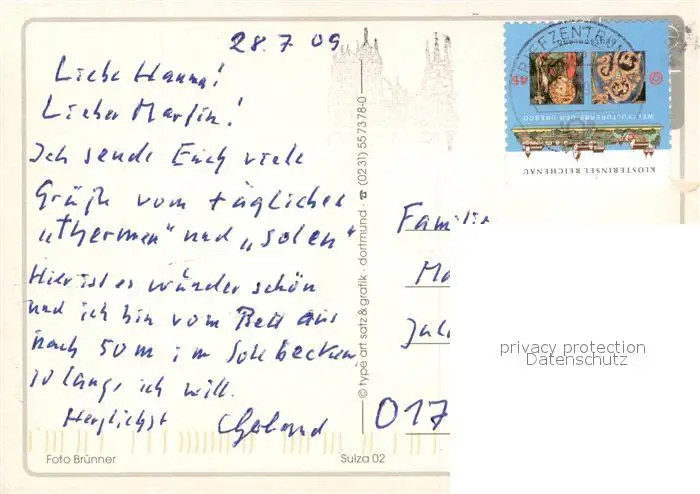 28.7.09
Liebe Hanna!
Lieber Martin!
Ich sende Euch viele
Grüße vom täglichen
"thermen" und "solen"
Hier ist es wunderschön
und ich bin vom Bett aus
nach 50m im Solebecken,
solange ich will.
Herzlichst
Familie
017
© type art satz & grafik · dortmund · ☎ (0231) 557378-0
BRIEFZENTRUM
DEUTSCHLAND
45
WELTKULTURERBE DER UNESCO
KLOSTERINSEL REICHENAU
privacy protection
Datenschutz
Foto Brünner
Sulza 02